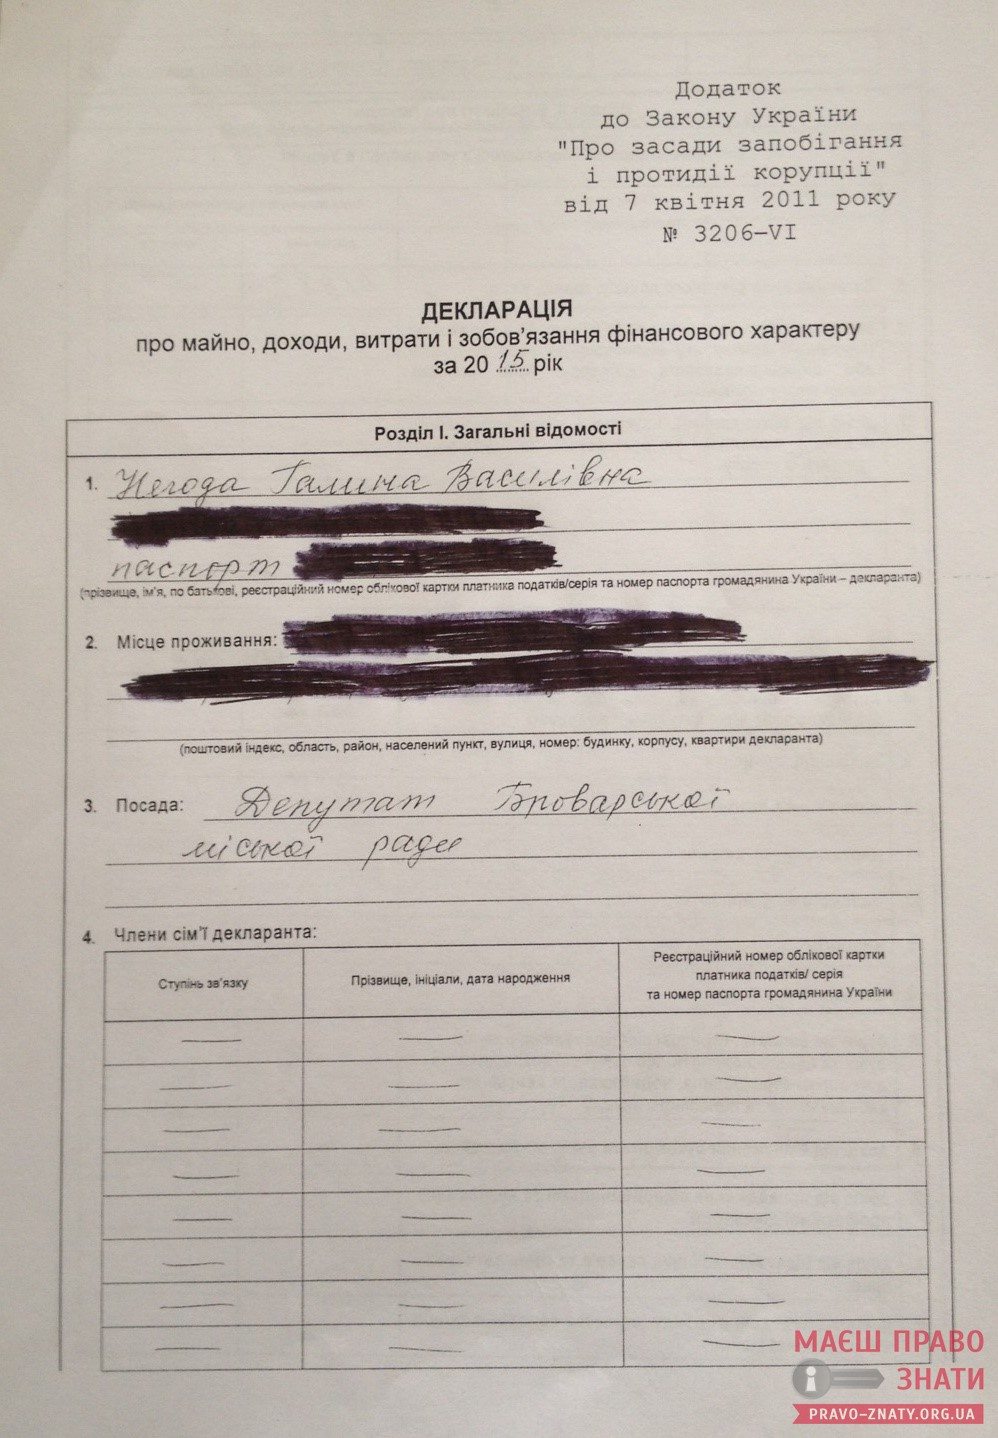 Додаток
до Закону України
"Про засади запобігання
і протидії корупції"
від 7 квітня 2011 року
№ 3206-VI
ДЕКЛАРАЦІЯ
про майно, доходи, витрати і зобов'язання фінансового характеру
за 2015 рік
Розділ І. Загальні відомості
1. Негода Галина Василівна
паспорт
(прізвище, ім'я, по батькові, реєстраційний номер облікової картки платника податків/серія та номер паспорта громадянина України – декларанта)
2. Місце проживання:
(поштовий індекс, область, район, населений пункт, вулиця, номер: будинку, корпусу, квартири декларанта)
3. Посада: Депутат Броварської
міської ради
4. Члени сім'ї декларанта:
Ступінь зв'язку
Прізвище, ініціали, дата народження
Реєстраційний номер облікової картки
платника податків/ серія
та номер паспорта громадянина України
МАЄШ ПРАВО
ЗНАТИ
PRAVO-ZNATY.ORG.UA